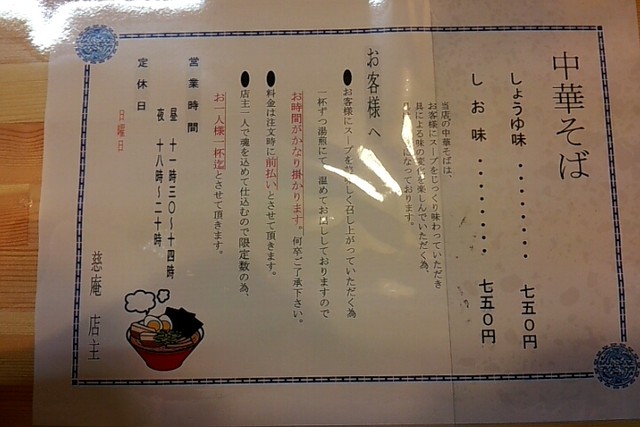 中華そば
しょうゆ味・・・・・・・・七五０円
しお味・・・・・・・・七五０円
当店の中華そばは、
お客様にスープをじっくり味わっていただき
具による味の変化を楽しんでいただく為、
なっております。
お客様へ
●お客様にスープを しく召し上がっていただく為
一杯ずつ湯煎にて、温めてお出ししておりますので
お時間がかなり掛かります。何卒ご了承下さい。
●料金は注文時に前払いとさせて頂きます。
●店主一人で魂を込めて仕込むので限定数の為、
お一人様一杯迄とさせて頂きます。
営業時間
昼 十一時三〇～十四時
夜 十八時～二十時
定休日
日曜日
慈庵 店主